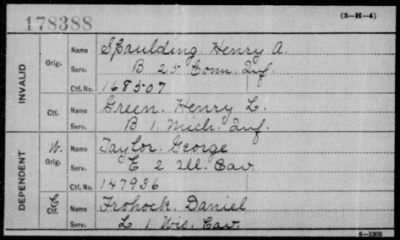 178388
(3-H-4)
INVALID
Orig.
Name Spaulding Henry A.
Serv. B 25 Conn. Inf.
Ctf. No. 168507
Ctf.
Name Green, Henry L.
Serv. B 1 Mich. Inf.
DEPENDENT
W.
Orig.
Name Taylor George
Serv. E 2 Ill. Cav.
Ctf. No. 147936
Ctf.
Name Frohock, Daniel
Serv. L 1 Wis. Cav.